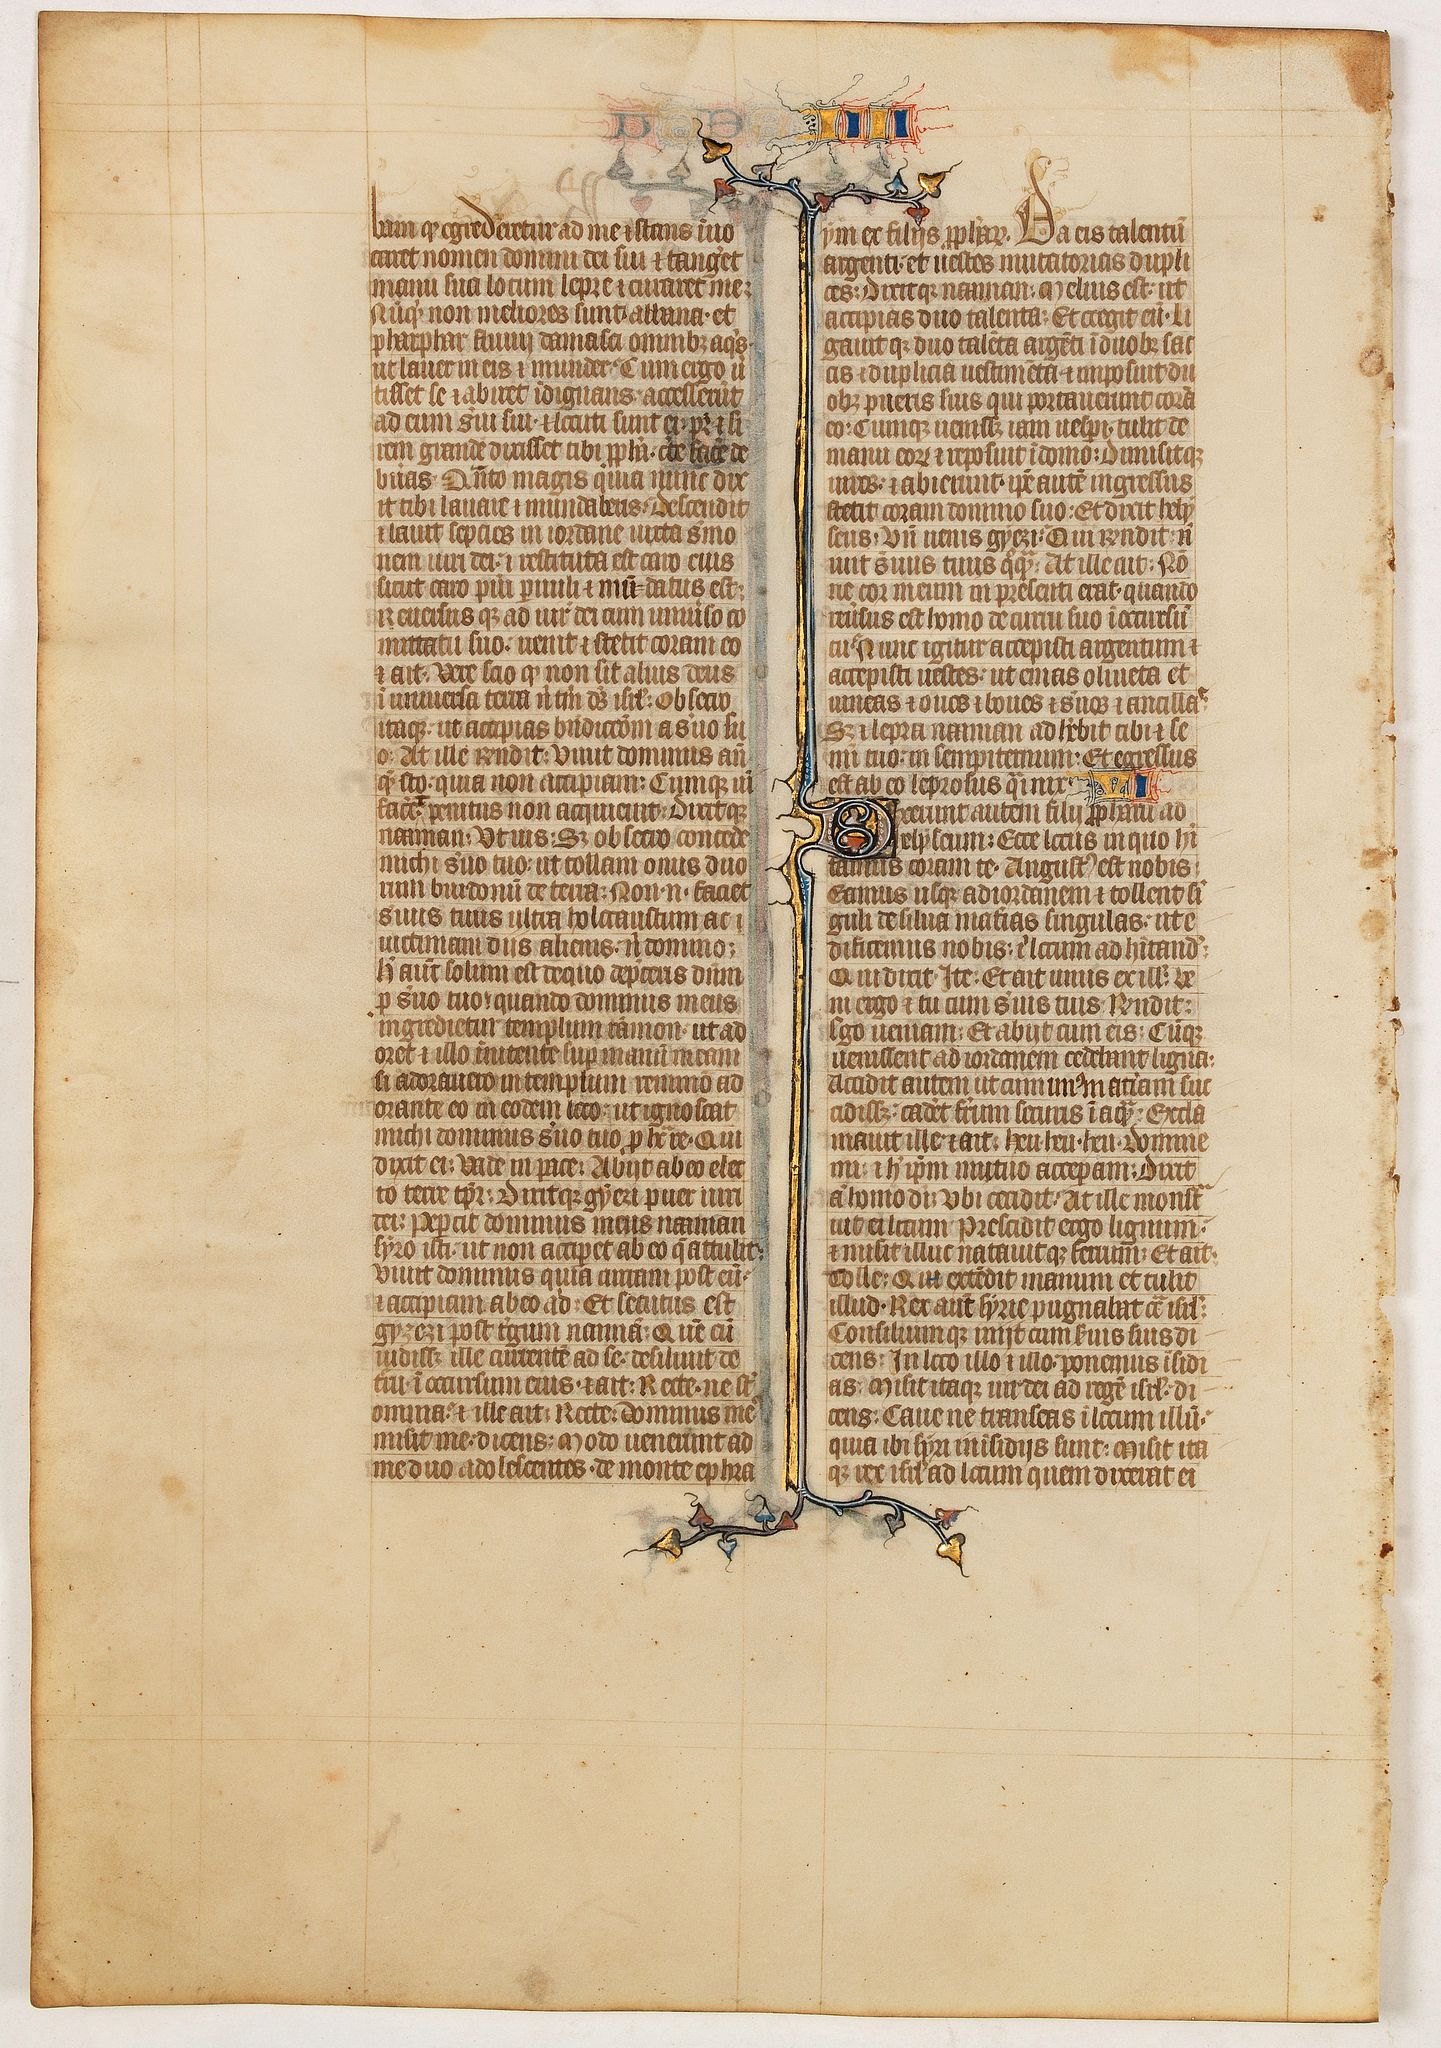 IIII
bam qꝫ egrederetur ad me ⁊ stans īuo
caret nomen domini dei sui ⁊ tang̃et
manu sua locum lepre ⁊ curaret me:
Nūq̃ non meliores sunt abana et
pharphar fluuij damasci omnibꝫ aq̃s
ut lauer in eis ⁊ munder· Cum ergo ũ
tisset se ⁊ abiret īdignans accesserūt
ad eum s̃ui sui ⁊ locuti sunt ei· pr̃ ⁊ si
rem grandē dixisset tibi ꝓph̃a· facere de
bueras· Q̃nto magis quia nunc dix
it tibi lauare ⁊ mundaberis· Descendit
⁊ lauit septies in iordane iuxta s̃mo
nem uiri dei· ⁊ restituta est caro eius
sicut caro pu̾i paruuli ⁊ mūdatus est:
Reuersus qꝫ ad uir̃ dei cum uniu̾so co
mitatu suo· uenit ⁊ stetit coram eo
⁊ ait· Vere scio qꝫ non sit alius deus
ī uniuersa terra n̄ tm̄ ds̄ isrl̃· Obsecro
itaqꝫ ut accipias bn̄dictiōm a s̃uo tu
o· At ille rn̄dit: Viuit dominus an̄
q̃ sto· quia non accipiam: Cumqꝫ uī
facēt penitus non acquieuit: Dixitqꝫ
naaman· Vt uis· Sꝫ obsecro concede
michi s̃uo tuo· ut tollam onus duo
rum burdonū de terra: Non·n· faciet
s̃uus tuus ultra holocaustum aut
uictimam dijs alienis· n̄ domino:
h̄ aut̃ solum est de quo dep̃ceris dn̄m
p s̃uo tuo: quando dominus meus
ingredietur templum remmon· ut ad
oret ⁊ illo īnitente sup manū meam
si adorauero in templum remmō ad
orante eo in eodem loco· ut ignoscat
michi dominus s̃uo tuo p hac re· Qui
dixit ei: Vade in pace: Abijt ab eo elec
to terre tp̃r: Dixitqꝫ gyezi puer uiri
dei: Pep̃cit dominus meus naaman
syro isti· ut non accip̃et ab eo q̃ attulit:
Viuit dominus quia curram post eū·
⁊ accipiam ab eo ad: Et secutus est
gyezi post t̾gum naamā: Quē cū
uidissꝫ ille currentē ad se· desiliuit de
c̃ru ī occursum eius ⁊ ait: Recte·ne st̄
omnia· ⁊ ille ait: Recte: Dominus me᷒
misit me·dicens: Modo uenerunt ad
me duo adolescentes·de monte ephra
ym ex filijs ꝓph̃aꝝ· Da eis talentū
argenti·et uestes mutatorias dupli
ces: Dixitqꝫ naaman: Melius est·ut
accipias duo talenta: Et coegit eū· Li
gauitqꝫ duo talēta argēti ī duobꝫ sac
cis ⁊ duplicia uestimēta ⁊ imposuit du
obꝫ pueris suis qui portauerunt corā
eo: Cumqꝫ uenissꝫ iam uesp̃i·tulit de
manu eoꝝ ⁊ reposuit ī domo: Dimisitqꝫ
uiros· ⁊ abierunt· ip̄e autē ingressus
stetit coram domino suo: Et dixit hely
seus· Vn̄ uenis gyezi· Qui rn̄dit: n̄
iuit s̃uus tuus q̃q̃: At ille ait: Nō
ne cor meum in presenti erat·quando
reu̾sus est homo de curru suo ī occursū
tui· Nunc igitur accepisti argentum ⁊
accepisti uestes· ut emas oliueta et
uineas ⁊ oues ⁊ boues ⁊ s̃uos ⁊ ancillas
Sꝫ ⁊ lepra naaman adh̃bit tibi ⁊ se
mī tuo·in sempiternum: Et egressus
est ab eo leprosus q̃i nix· VI
Dixerunt autem filij ꝓphaꝝ ad
helyseum: Ecce locus in quo hī
tamus coram te· Angustꝰ est nobis
Eamus usqꝫ ad iordanem ⁊ tollent sī
guli de silua matīas singulas· ut e
dificemus nobis· ī locum ad hītandū:
Qui dixit· Ite: Et ait unus ex ill̄· Ve
ni ergo ⁊ tu cum s̃uis tuis· Rn̄dit:
Ego ueniam: Et abijt cum eis: Cūqꝫ
uenissent ad iordanem cedebant ligna:
Accidit autem ut cum unꝰ materiam suc
cidissꝫ: cadēt ferrum securis ī aq̃: Excla
mauit ille ⁊ ait: heu·heu·heu·domine
mi: ⁊ h̄ ip̄m mutuo accep̃am: Dixit
aū homo dī: Vbi cecidit· At ille monst̃
uit ei locum· Prescidit ergo lignum·
⁊ misit illuc natauitqꝫ ferrum: Et ait·
Tolle: Qui extēdit manum et tulit
illud· Rex aut̃ syrie pugnabat cō isrl̃:
Consiliumqꝫ inijt cum s̃uis suis di
cens: In loco illo ⁊ illo·ponemus īsidi
as: Misit itaqꝫ uir dei ad regē isrl̃·di
cens: Caue ne transeas ī locum illū·
quia ibi syri in īsidijs sunt: Misit ita
qꝫ rex isrl̃ ad locum quem dixerat ei